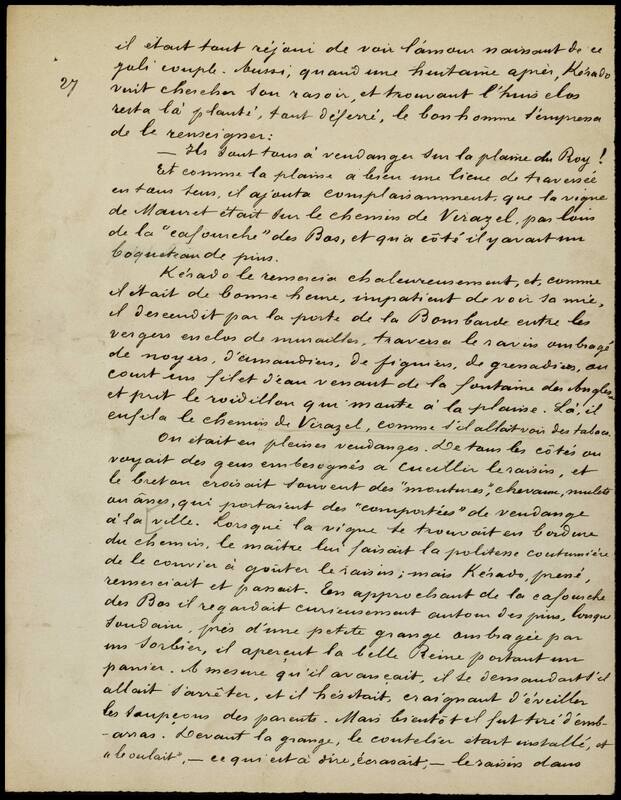 il était tout réjoui de voir l'amour naissant de ce
27
joli couple. Aussi, quand une huitaine après, Késado
vint chercher son rasoir, et trouvant l'huis clos
resta là planté, tout déferré, le bonhomme s'empressa
de le renseigner:
— Ils sont tous à vendanger sur la plaine du Roy!
Et comme la plaine a bien une lieue de traversée
en tous sens, il ajouta complaisamment, que la vigne
de Mauret était sur le chemin de Virazel, pas loin
de la "cafourche" des Bos, et qu'à côté il y avait un
boqueteau de pins.
Késado le remercia chaleureusement, et, comme
il était de bonne heure, impatient de voir sa mie,
il descendit par la porte de la Bombarde entre les
vergers enclos de murailles, traversa le ravin ombragé
de noyers, d'amandiers, de figuiers, de grenadiers, où
court un filet d'eau venant de la fontaine des Anglais
et prit le roidillon qui monte à la plaine. Là, il
enfila le chemin de Virazel, comme s'il allait voir des tabacs.
On était en pleines vendanges. De tous les côtés on
voyait des gens embesognés à cueillir le raisin, et
le breton croisait souvent des "moutures", chevaux, mulets
ou ânes, qui portaient des "comportées" de vendange
à la ville. Lorsque la vigne se trouvait en bordure
du chemin, le maître lui faisait la politesse coutumière
de le convier à goûter le raisin; mais Késado, pressé,
remerciait et passait. En approchant de la cafourche
des Bos il regardait curieusement autour des pins, lorsque
soudain, près d'une petite grange ombragée par
un sorbier, il aperçut la belle Reine portant un
panier. A mesure qu'il avançait, il se demandait s'il
allait s'arrêter, et il hésitait, craignant d'éveiller
les soupçons des parents. Mais bientôt il fut tiré d'emb-
-arras. Devant la grange, le coutelier était installé, et
"boulait", — ce qui est à dire, écrasait, — le raisin dans